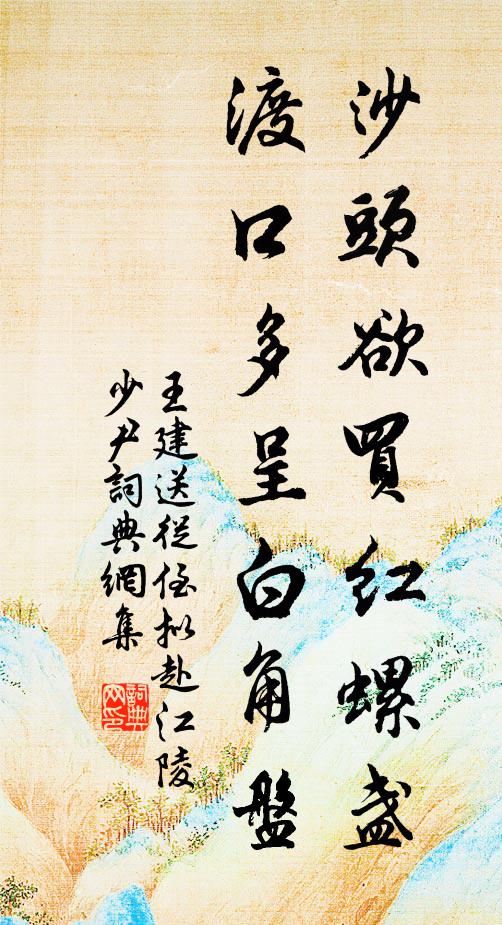 沙頭欲買紅螺盞
渡口多呈白角盤
王建送從侄拟赴江陵
少尹詞典網集
詞典网印